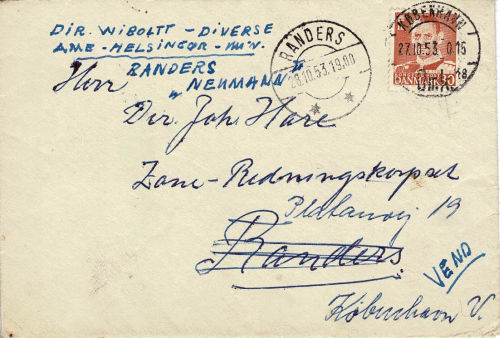 DIR. WIBOLTT - DIVERSE
AME - HELSINGØR - M.V.
RANDERS
"NEUMANN"
RANDERS
28.10.53.19.00
KØBENHAVN
27.10.53. 0.16
DANMARK
Herr
Dir. Joh. Hare
Zone-Redningskorpset
Platanvej 19
Randers.
VEND
København V.